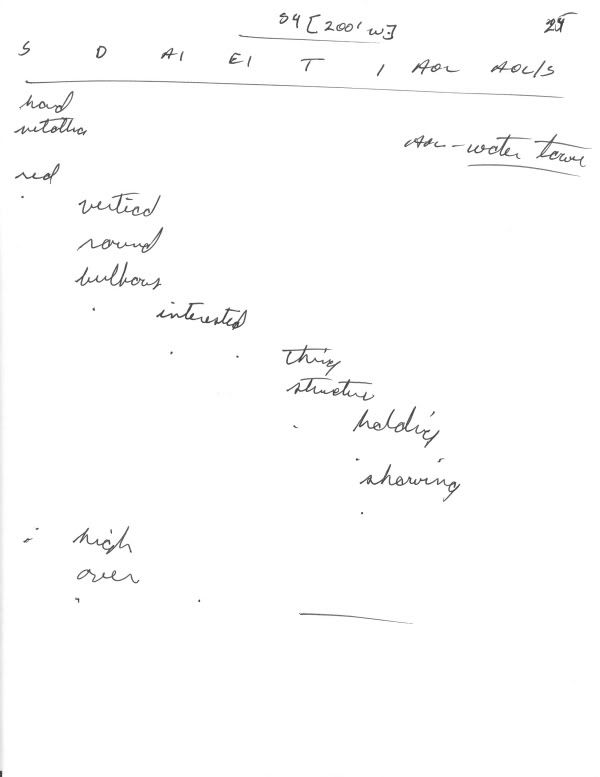 S4 [200' W]
S D AI EI T I AOL AOL/S
hard
AOL - water tower
red
vertical
round
bulbous
interested
thing
structure
holding
showing
high
over